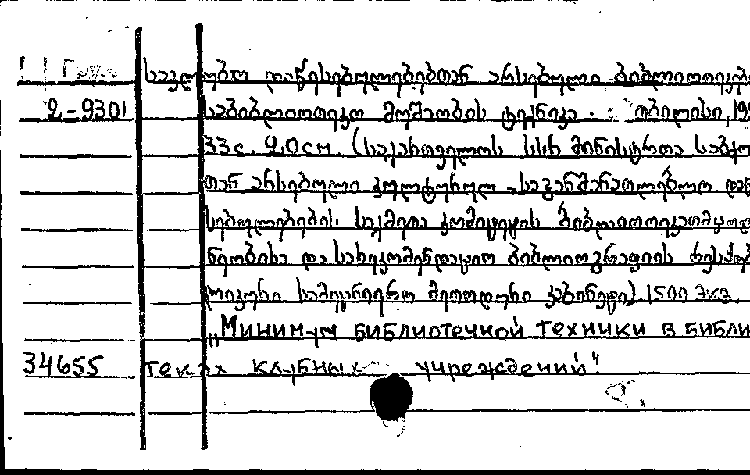 საკლუბო დაწესებულებებთან არსებული ბიბლიოთეკებ
2-9301 საბიბლიოთეკო მუშაობის ტექნიკა. თბილისი, 195
33с. 20см. (საქართველოს სსრ მინისტრთა საბჭო
თან არსებული კულტურულ-საგანმანათლებლო დაწე
სებულებების საქმეთა კომიტეტის ბიბლიოთეკათმცოდ
ნეობისა და სარეკომენდაციო ბიბლიოგრაფიის რესპუბ
ლიკური სამეცნიერო მეთოდური კაბინეტი). 1500 экз.
„Минимум библиотечной техники в библи
34655 теках клубных учреждений"